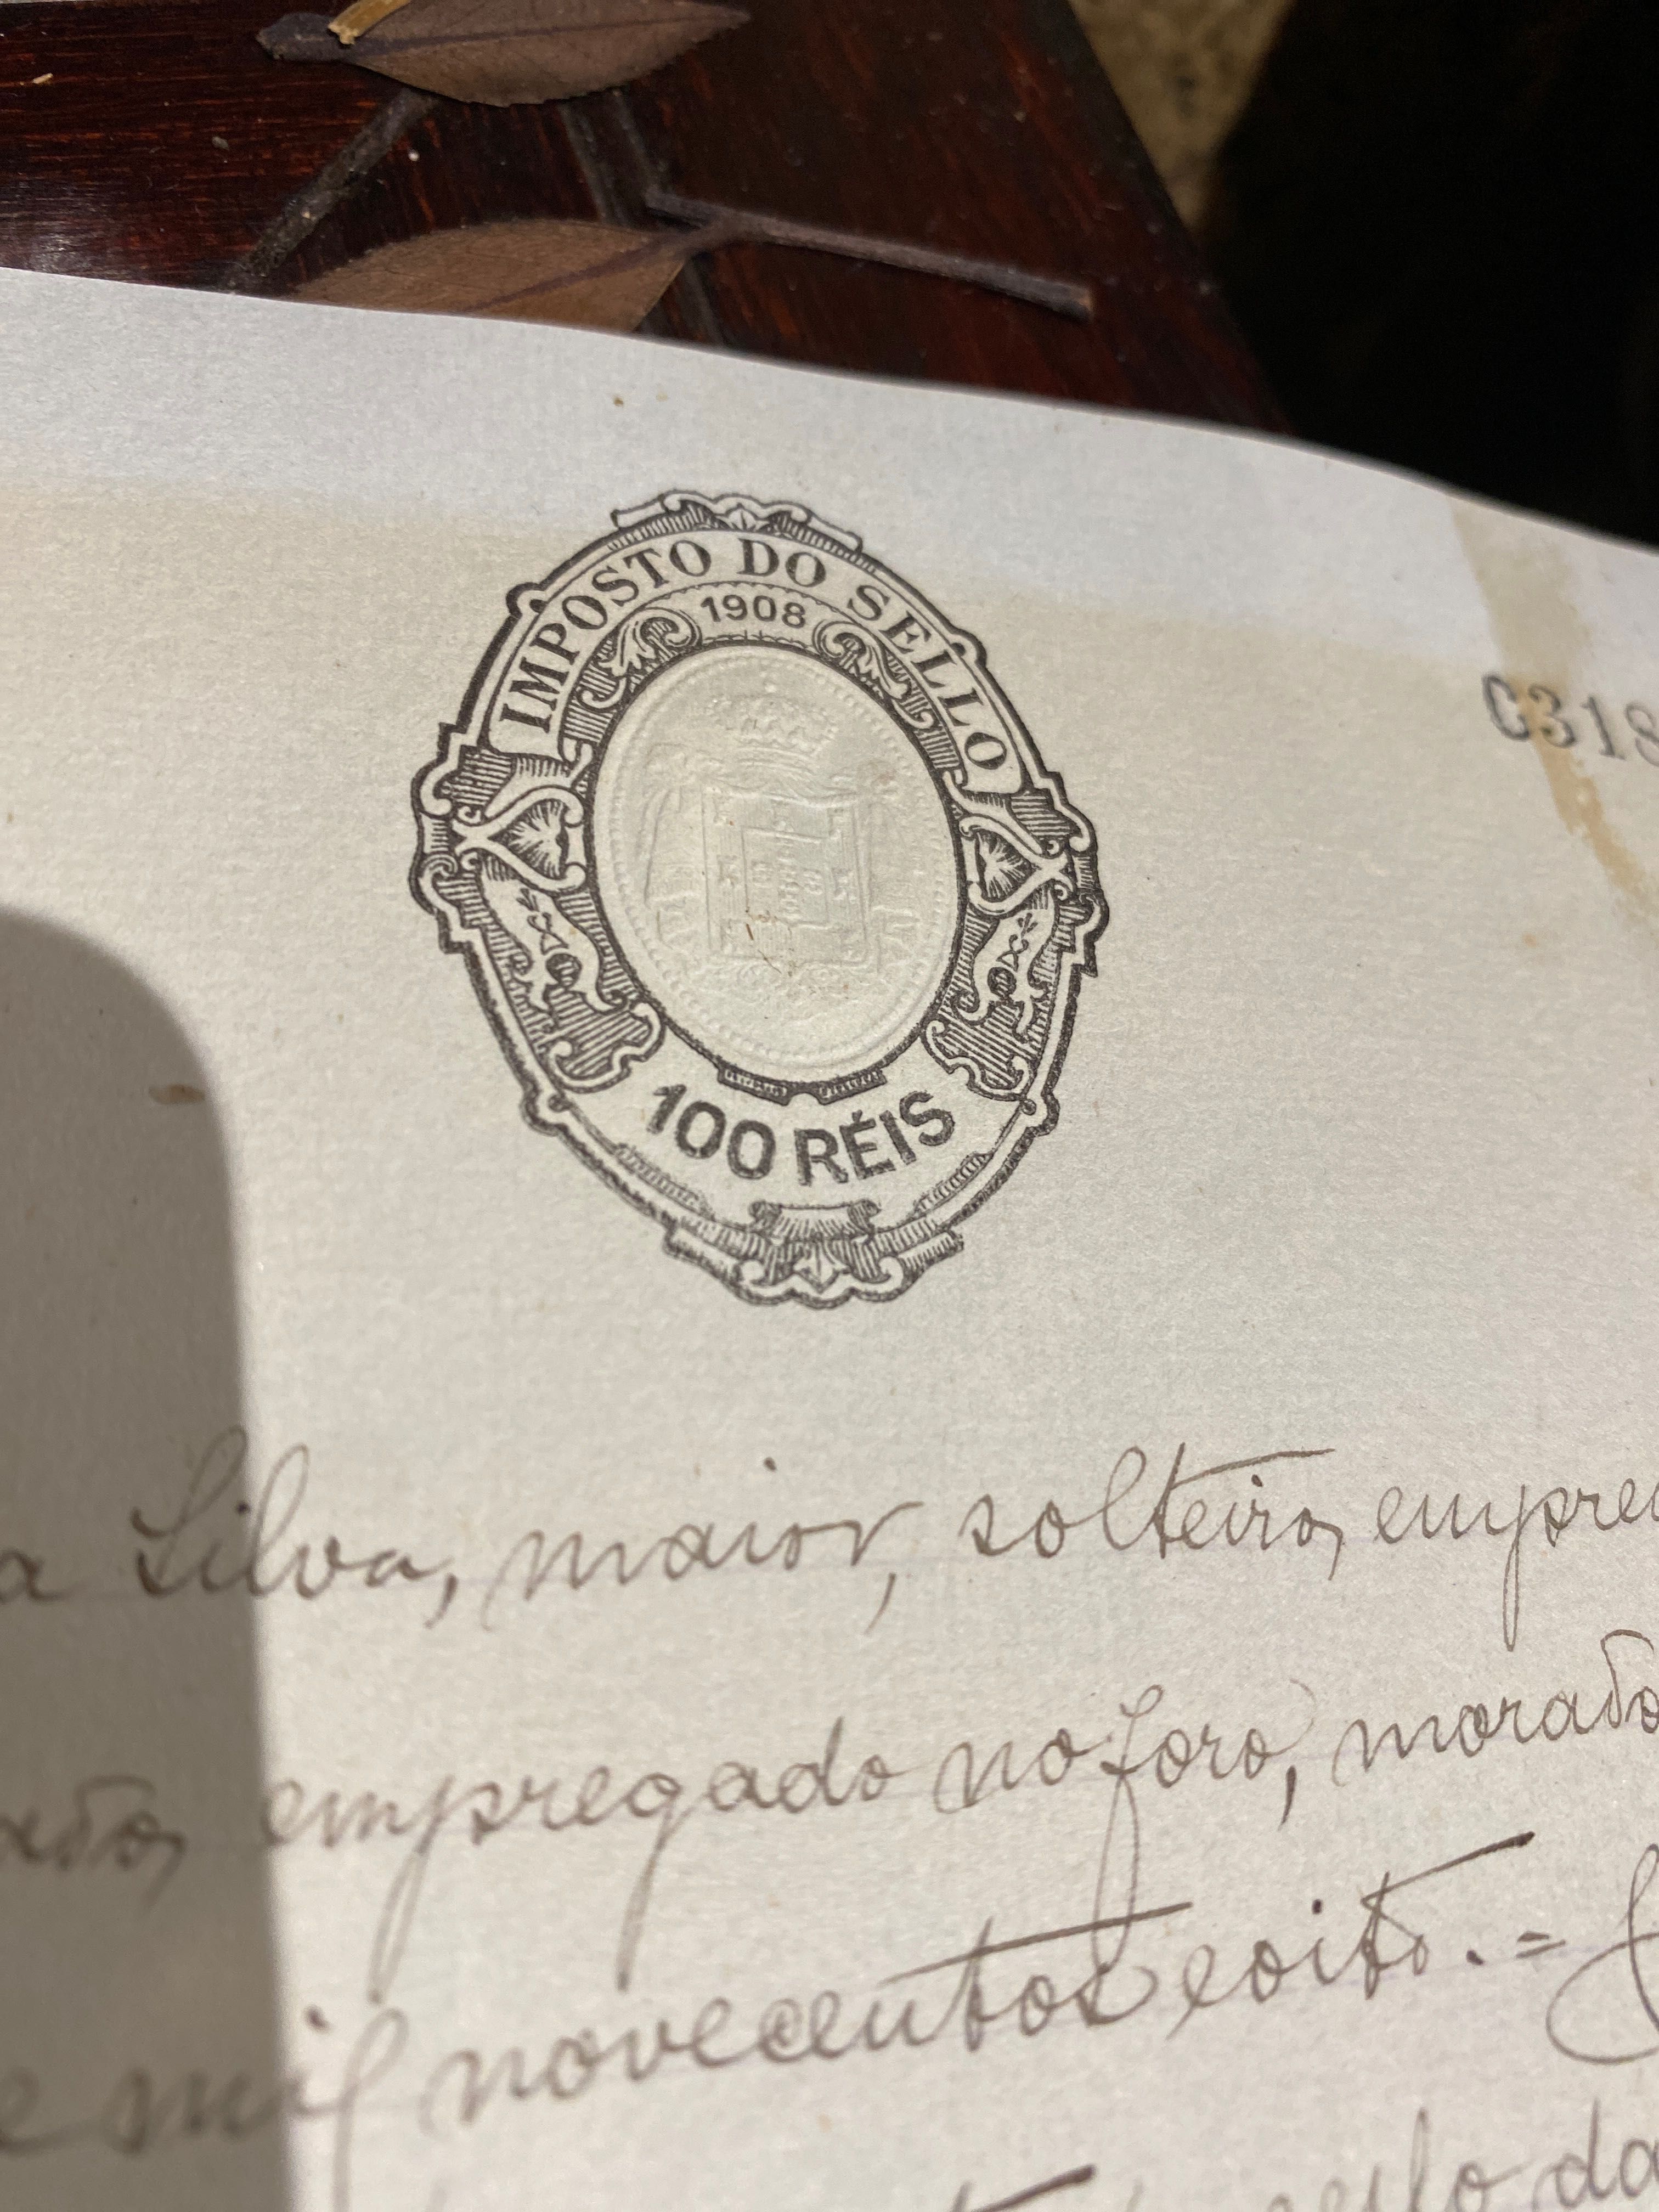 IMPOSTO DO SELLO
1908
C318
100 RÉIS
a Silva, maior, solteiro, empre
empregado no foro, morado
e mil novecentos e oito. =